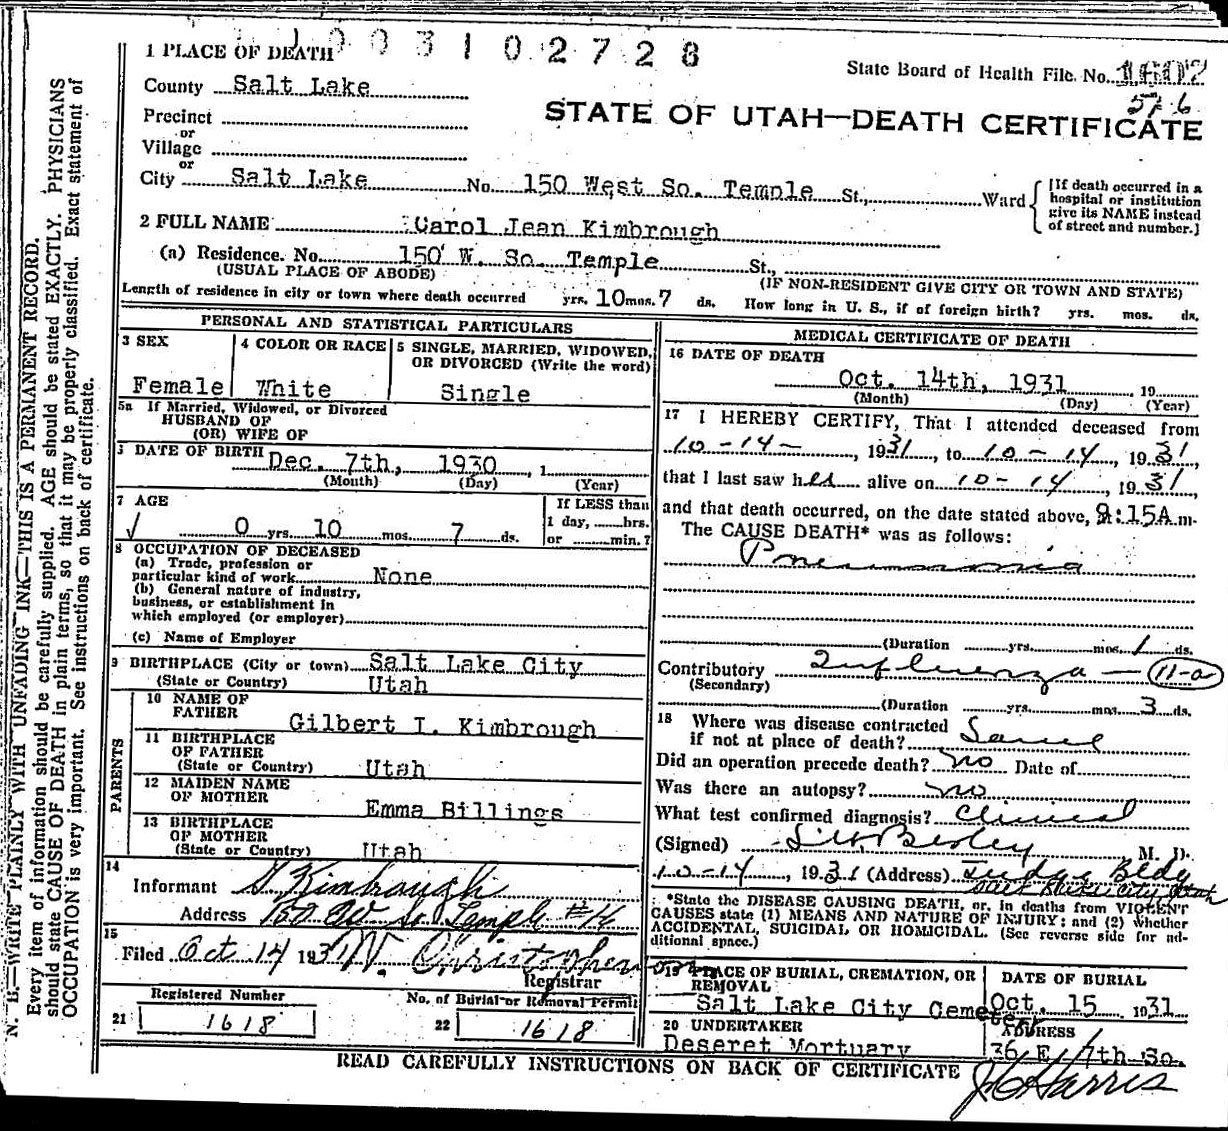 0 0 3 1 0 2 7 2 8
1 PLACE OF DEATH
State Board of Health File No. 1607
County Salt Lake
STATE OF UTAH—DEATH CERTIFICATE
Precinct
or
Village
or
City Salt Lake No. 150 West So. Temple St., Ward
[If death occurred in a hospital or institution give its NAME instead of street and number.]
2 FULL NAME Carol Jean Kimbrough
(a) Residence. No. 150 W. So. Temple St.,
(USUAL PLACE OF ABODE) (IF NON-RESIDENT GIVE CITY OR TOWN AND STATE)
Length of residence in city or town where death occurred yrs. 10 mos. 7 ds. How long in U. S., if of foreign birth? yrs. mos. ds.
PERSONAL AND STATISTICAL PARTICULARS
3 SEX
Female
4 COLOR OR RACE
White
5 SINGLE, MARRIED, WIDOWED,
OR DIVORCED (Write the word)
Single
5a If Married, Widowed, or Divorced
HUSBAND OF
(OR) WIFE OF
DATE OF BIRTH Dec. 7th, 1930, 1
(Month) (Day) (Year)
7 AGE
0 yrs. 10 mos. 7 ds.
If LESS than
1 day, hrs.
or min.?
8 OCCUPATION OF DECEASED
(a) Trade, profession or
particular kind of work None
(b) General nature of industry,
business, or establishment in
which employed (or employer)
(c) Name of Employer
9 BIRTHPLACE (City or town) Salt Lake City
(State or Country) Utah
PARENTS
10 NAME OF
FATHER Gilbert I. Kimbrough
11 BIRTHPLACE
OF FATHER
(State or Country) Utah
12 MAIDEN NAME
OF MOTHER Emma Billings
13 BIRTHPLACE
OF MOTHER
(State or Country) Utah
14
Informant G Kimbrough
Address 150 W So Temple #16
15
Filed Oct 14 193 W. Christopherson
Registrar
Registered Number
21 1618
No. of Burial or Removal Permit
22 1618
MEDICAL CERTIFICATE OF DEATH
16 DATE OF DEATH
Oct. 14th, 1931 19
(Month) (Day) (Year)
17 I HEREBY CERTIFY, That I attended deceased from
10-14-, 1931, to 10-14, 1931,
that I last saw her alive on 10-14, 1931,
and that death occurred, on the date stated above, 9:15A m.
The CAUSE DEATH* was as follows:
Pneumonia
(Duration yrs. mos. 1 ds.
Contributory Influenza — 11-a
(Secondary)
(Duration yrs. mos. 3 ds.
18 Where was disease contracted
if not at place of death? Same
Did an operation precede death? no Date of
Was there an autopsy? no
What test confirmed diagnosis? Clinical
(Signed) Besley M. D.
10-14, 1931 (Address) Judge Bldg
Salt Lake City Utah
*State the DISEASE CAUSING DEATH, or, in deaths from VIOLENT
CAUSES state (1) MEANS AND NATURE OF INJURY; and (2) Whether
ACCIDENTAL, SUICIDAL OR HOMICIDAL. (See reverse side for ad-
ditional space.)
19 PLACE OF BURIAL, CREMATION, OR
REMOVAL
Salt Lake City Cemetery
DATE OF BURIAL
Oct. 15 1931
20 UNDERTAKER
Deseret Mortuary
ADDRESS
36 E 7th So.
READ CAREFULLY INSTRUCTIONS ON BACK OF CERTIFICATE
J C Harris
N. B.—WRITE PLAINLY WITH UNFADING INK—THIS IS A PERMANENT RECORD.
Every item of information should be carefully supplied. AGE should be stated EXACTLY. PHYSICIANS
should state CAUSE OF DEATH in plain terms, so that it may be properly classified. Exact statement of
OCCUPATION is very important. See instructions on back of certificate.